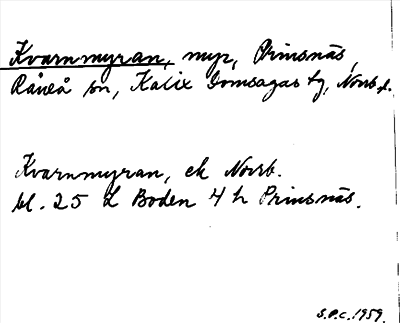 Kvarnmyran, myr, Prinsnäs,
Råneå sn, Kalix domsagas tg, Norrb.
Kvarnmyran, ek Norrb.
bl. 25 L Boden 4 h Prinsnäs.
S.P.C. 1959.